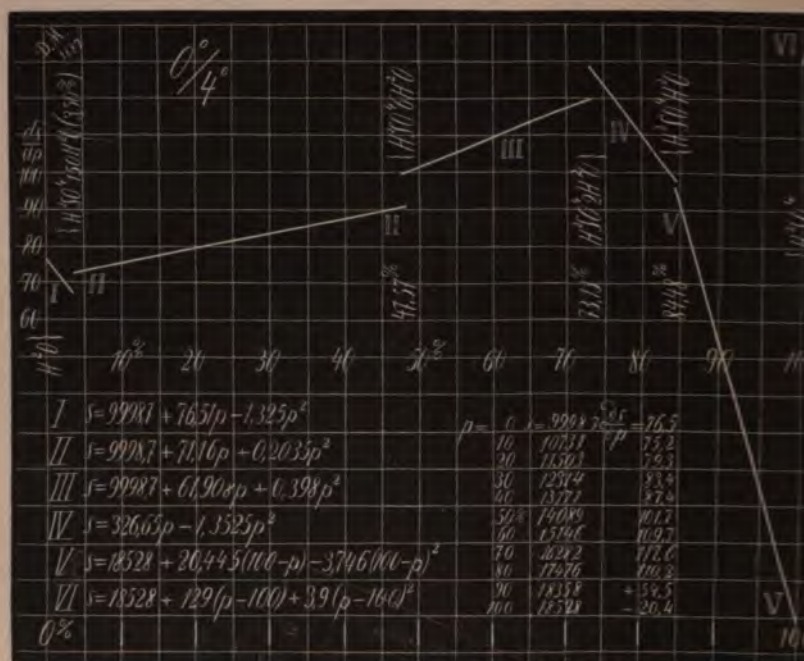 0°/4°
VI
ds
dp
100
90
80
70
60
I
II
II
III
IV
V
H²O
47,57%
73,13%
84,48%
10%
20
30
40
50%
60
70
80
90
I s=9998,7 + 76,51p − 1,325p²
II s=9998,7 + 71,16p + 0,2035p²
III s=9998,7 + 61,908p + 0,398p²
IV s=326,65p − 1,3525p²
V s=18528 + 20,445(100−p) − 3,746(100−p)²
VI s=18528 + 129(p−100) + 3,9(p−100)²
p= 0 s=9998,7 ds/dp = 76,5
10 10731 75,2
20 11503 79,3
30 12314 83,4
40 13171 87,4
50% 14089 101,7
60 15146 109,7
70 16282 117,6
80 17476 110,3
90 18358 + 54,5
100 18528 − 20,4
V
0%